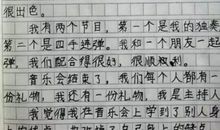 很出色。
我有两个节目，第一个是我的独奏
第二个是四手连弹。我和一个朋友一起
弹，我们配合得很好，很顺利。
音乐会结束了，我们每个人都有一
份礼物，我还有一份礼物，是主持人
我觉得我在音乐会上学到了别人身